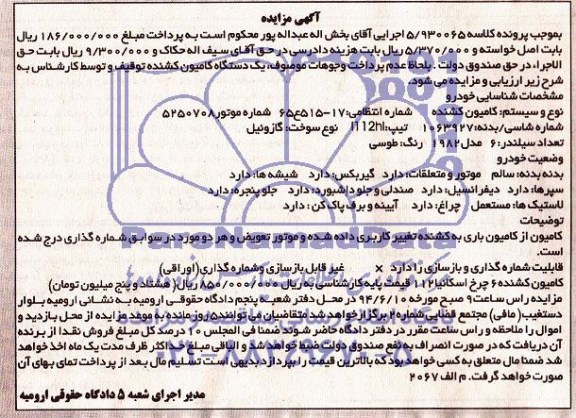 آگهی مزایده
بموجب پرونده کلاسه ۵/۹۳۰۰۶۵ اجرایی آقای بخش اله عبداله پور محکوم است به پرداخت مبلغ ۱۸۶/۰۰۰/۰۰۰ ریال
بابت اصل خواسته و ۵/۳۷۰/۰۰۰ ریال بابت هزینه دادرسی در حق آقای سیف اله حکاک و ۹/۳۰۰/۰۰۰ ریال بابت حق
الاجراء در حق صندوق دولت . بلحاظ عدم پرداخت وجوهات موصوف، یک دستگاه کامیون کشنده توقیف و توسط کارشناس به
شرح زیر ارزیابی و مزایده می شود.
مشخصات شناسایی خودرو
نوع و سیستم: کامیون کشنده شماره انتظامی: ۱۷-۵۱۵ع۶۵ شماره موتور ۵۲۵۰۷۰۸
شماره شاسی/بدنه: ۱۰۶۳۹۲۷ تیپ: l112hl نوع سوخت: گازوئیل
تعداد سیلندر: ۶ مدل ۱۹۸۲ رنگ: طوسی
وضعیت خودرو
بدنه بدنه: سالم موتور و متعلقات: دارد گیربکس: دارد شیشه ها: دارد
سپرها: دارد دیفرانسیل: دارد صندلی و جلو داشبورد: دارد جلو پنجره: دارد
لاستیک ها: مستعمل چراغ: دارد آیینه و برف پاک کن : دارد
توضیحات
کامیون از کامیون باری به کشنده تغییر کاربری داده شده و موتور تعویض و هر دو مورد در سوابق شماره گذاری درج شده
است.
قابلیت شماره گذاری و بازسازی را دارد x غیر قابل بازسازی و شماره گذاری (اوراقی)
کامیون کشنده ۶ چرخ اسکانیا ۱۱۲ قیمت پایه کارشناسی به ریال ۸۵۰/۰۰۰/۰۰۰ ریال (هشتاد و پنج میلیون تومان)
مزایده راس ساعت ۹ صبح مورخه ۹۴/۶/۱۰ در محل دفتر شعبه پنجم دادگاه حقوقی ارومیه به نشانی ارومیه بلوار
دستغیب (مافی) مجتمع قضایی شماره ۲ برگزار خواهد شد متقاضیان می توانند ۵ روز مانده به موعد مزایده از محل بازدید و
اموال را ملاحظه و راس ساعت مقرر در دفتر دادگاه حاضر شوند ضمنا فی المجلس ۱۰ درصد کل مبلغ فروش نقدا از برنده
آن دریافت که در صورت انصراف به نفع صندوق دولت ضبط خواهد شد و الباقی مبلغ حداکثر ظرف مدت یک ماه اخذ خواهد
شد ضمنا مال متعلق به کسی خواهد بود که بالاترین قیمت را بپردازد بدیهی است تسلیم مال بعد از پرداخت تمای بهای آن
صورت خواهد گرفت. م الف ۲۰۶۷
مدیر اجرای شعبه ۵ دادگاه حقوقی ارومیه
ParsNamadData
۰۲۱-۸۸۳۴۹۶۷۰-۵